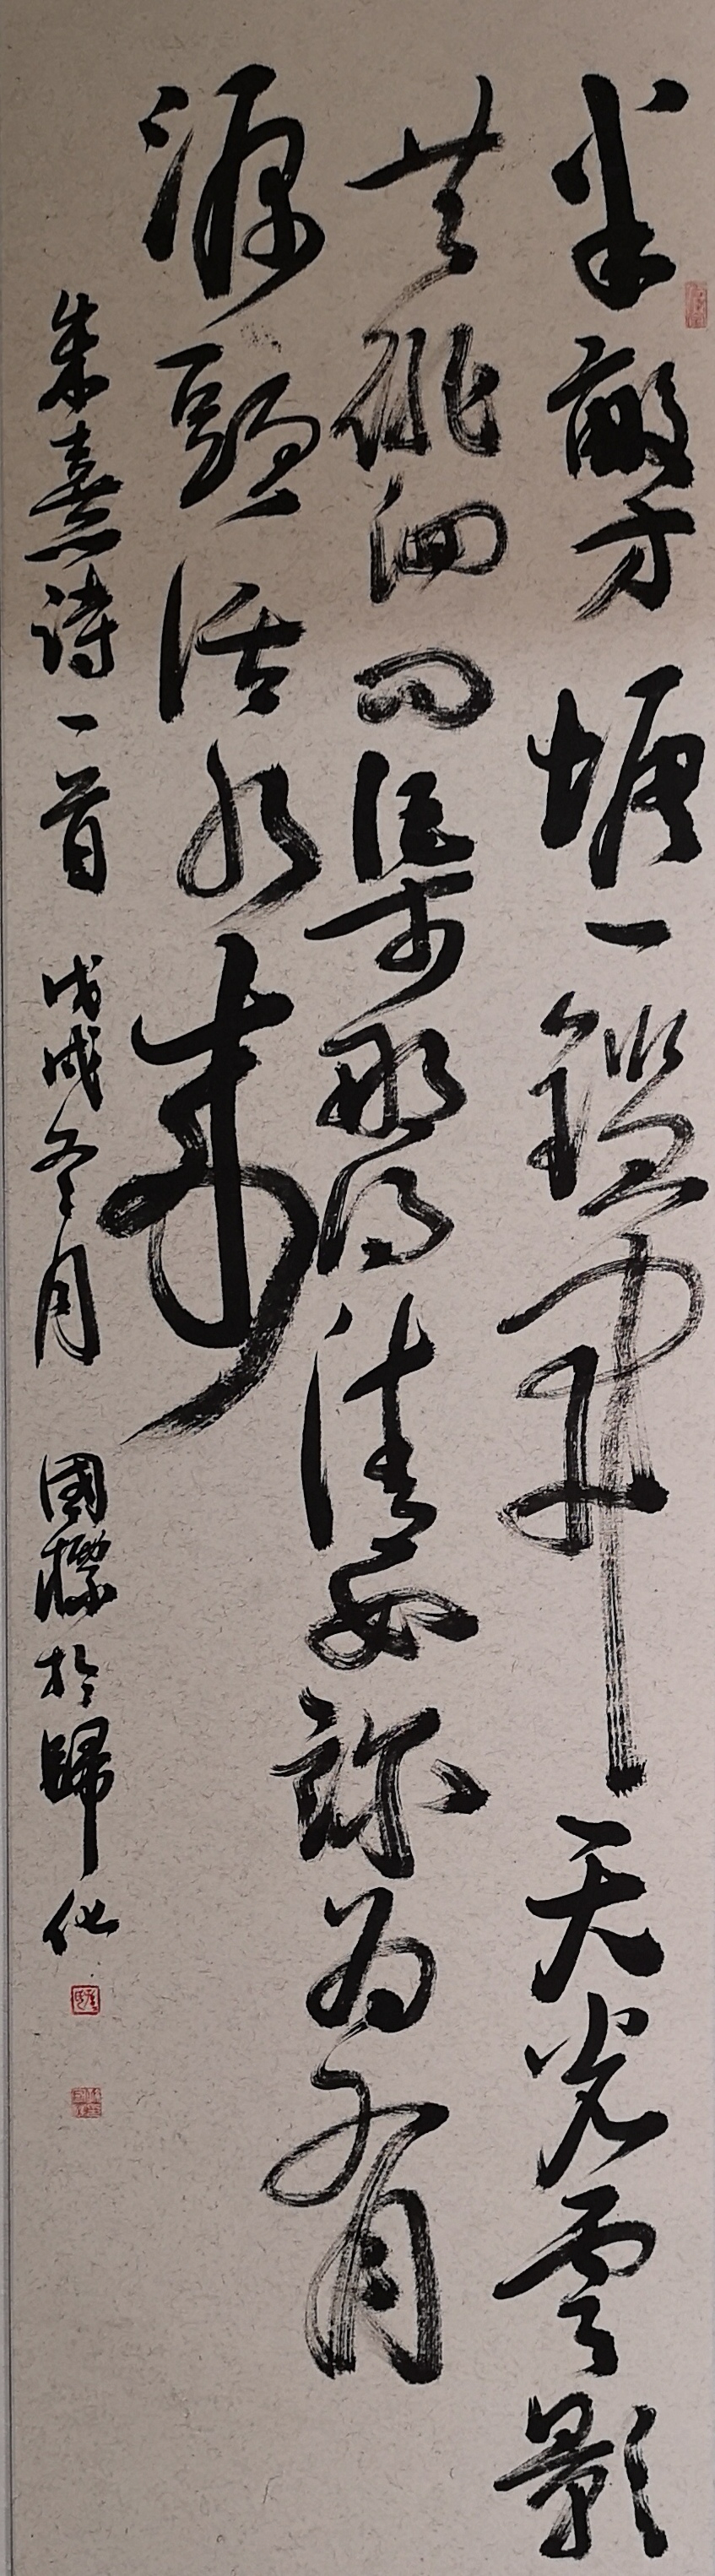 半畝方塘一鑑開天光雲影
共徘徊問渠那得清如許為有
源頭活水來
朱熹詩一首 戊戌冬月 國標於歸化